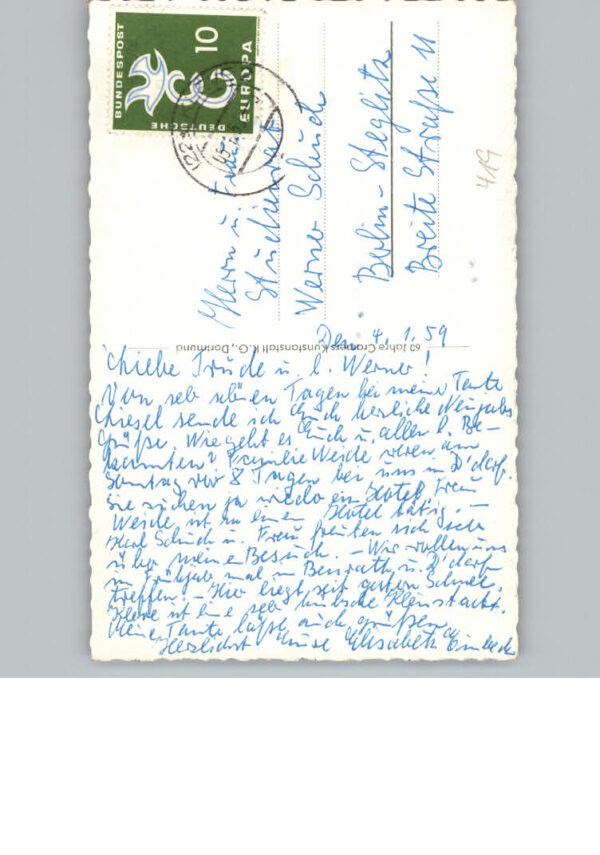 DEUTSCHE
BUNDESPOST
10
EUROPA
Herrn u. Frau
Studienrat
Werner Schuch
Berlin-Steglitz
Breite Straße 11
419
60 Jahre Cramers Kunstanstalt K.G., Dortmund
Den 4. 1. 59
Liebe Trude u. l. Werner!
Von sehr schönen Tagen bei meiner Tante
Liesel sende ich Euch herzliche Neujahrs
grüße. Wie geht es Euch u. allen l. Be-
kannten? Familie Weide waren am
Sonntag vor 8 Tagen bei uns in D'dorf.
Sie suchen ja wieder ein Hotel. Frau
Weide ist in einem Hotel tätig. –
Karl Schuch u. Frau freuten sich sehr
über meinen Besuch. – Wir wollen uns
im Frühjahr mal in Benrath u. D'dorf
treffen. – Hier liegt seit gestern Schnee.
Kleve ist eine sehr hübsche Kleinstadt.
Meine Tante läßt auch grüßen.
Herzlichst Eure Elisabeth